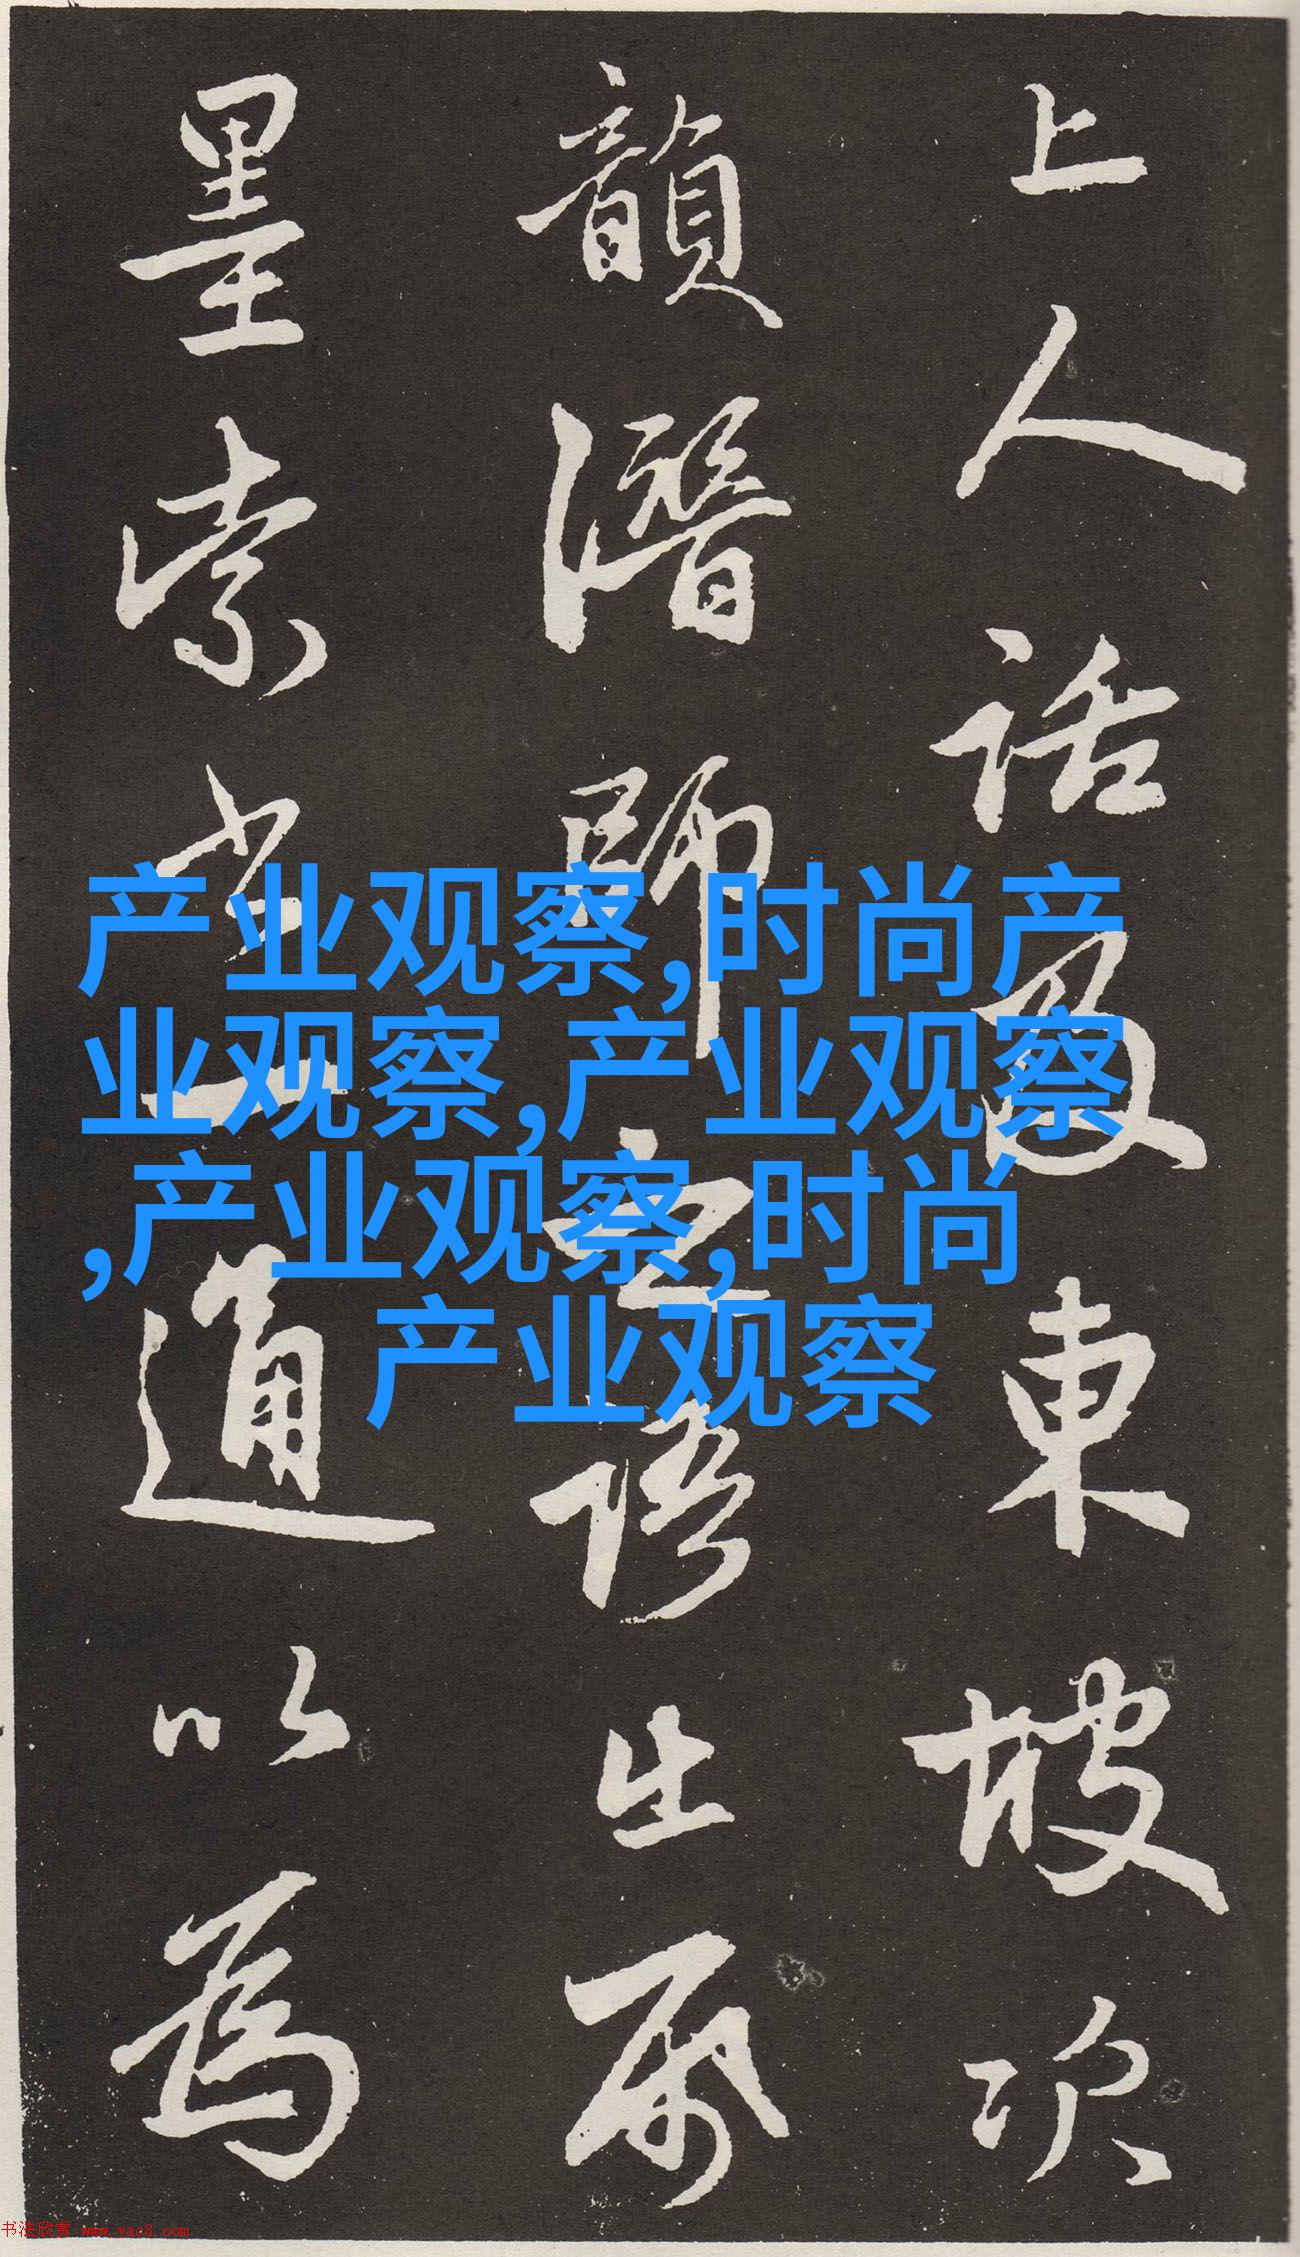 上人話及東坡次
韻潛師
語生所
墨索書一通以為
产业观察,时尚产
业观察,产业观察
,产业观察,时尚
产业观察
书法欣赏 www.yac8.com